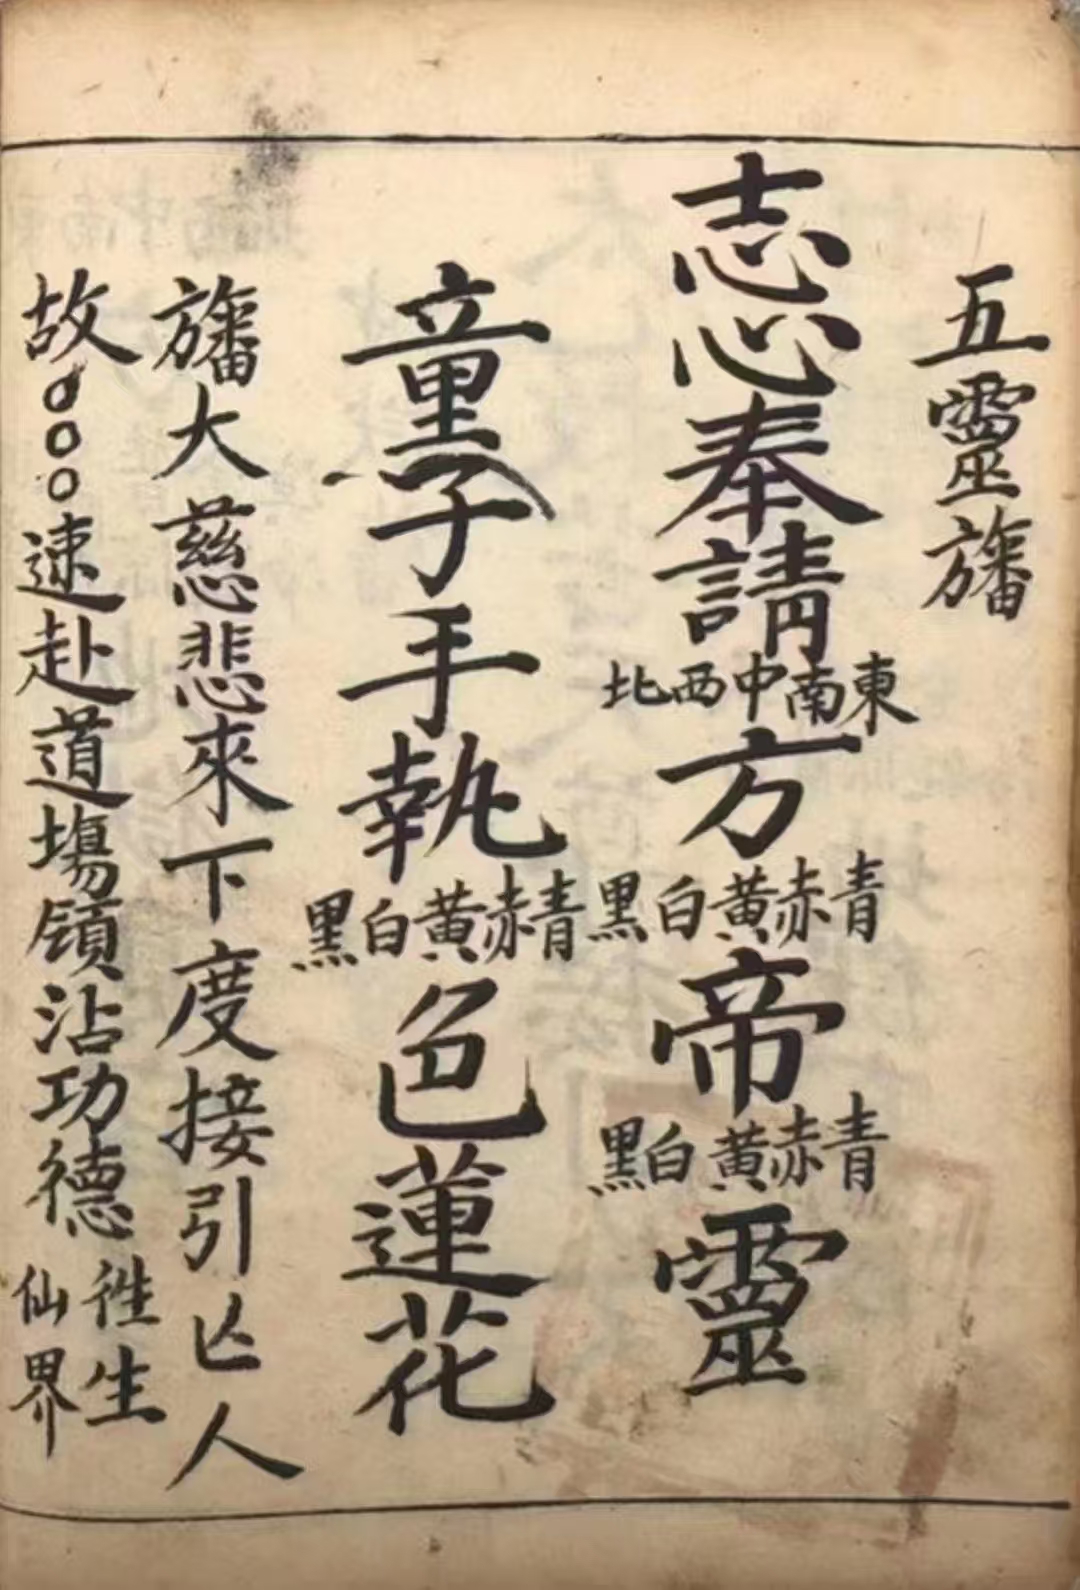 五靈旛
志心奉請東南中西北方青赤黃白黑帝青赤黃白黑靈
童子手執青赤黃白黑色蓮花
旛大慈悲來下度接引亾人
故〇〇〇速赴道塲領沾功德徃生仙界